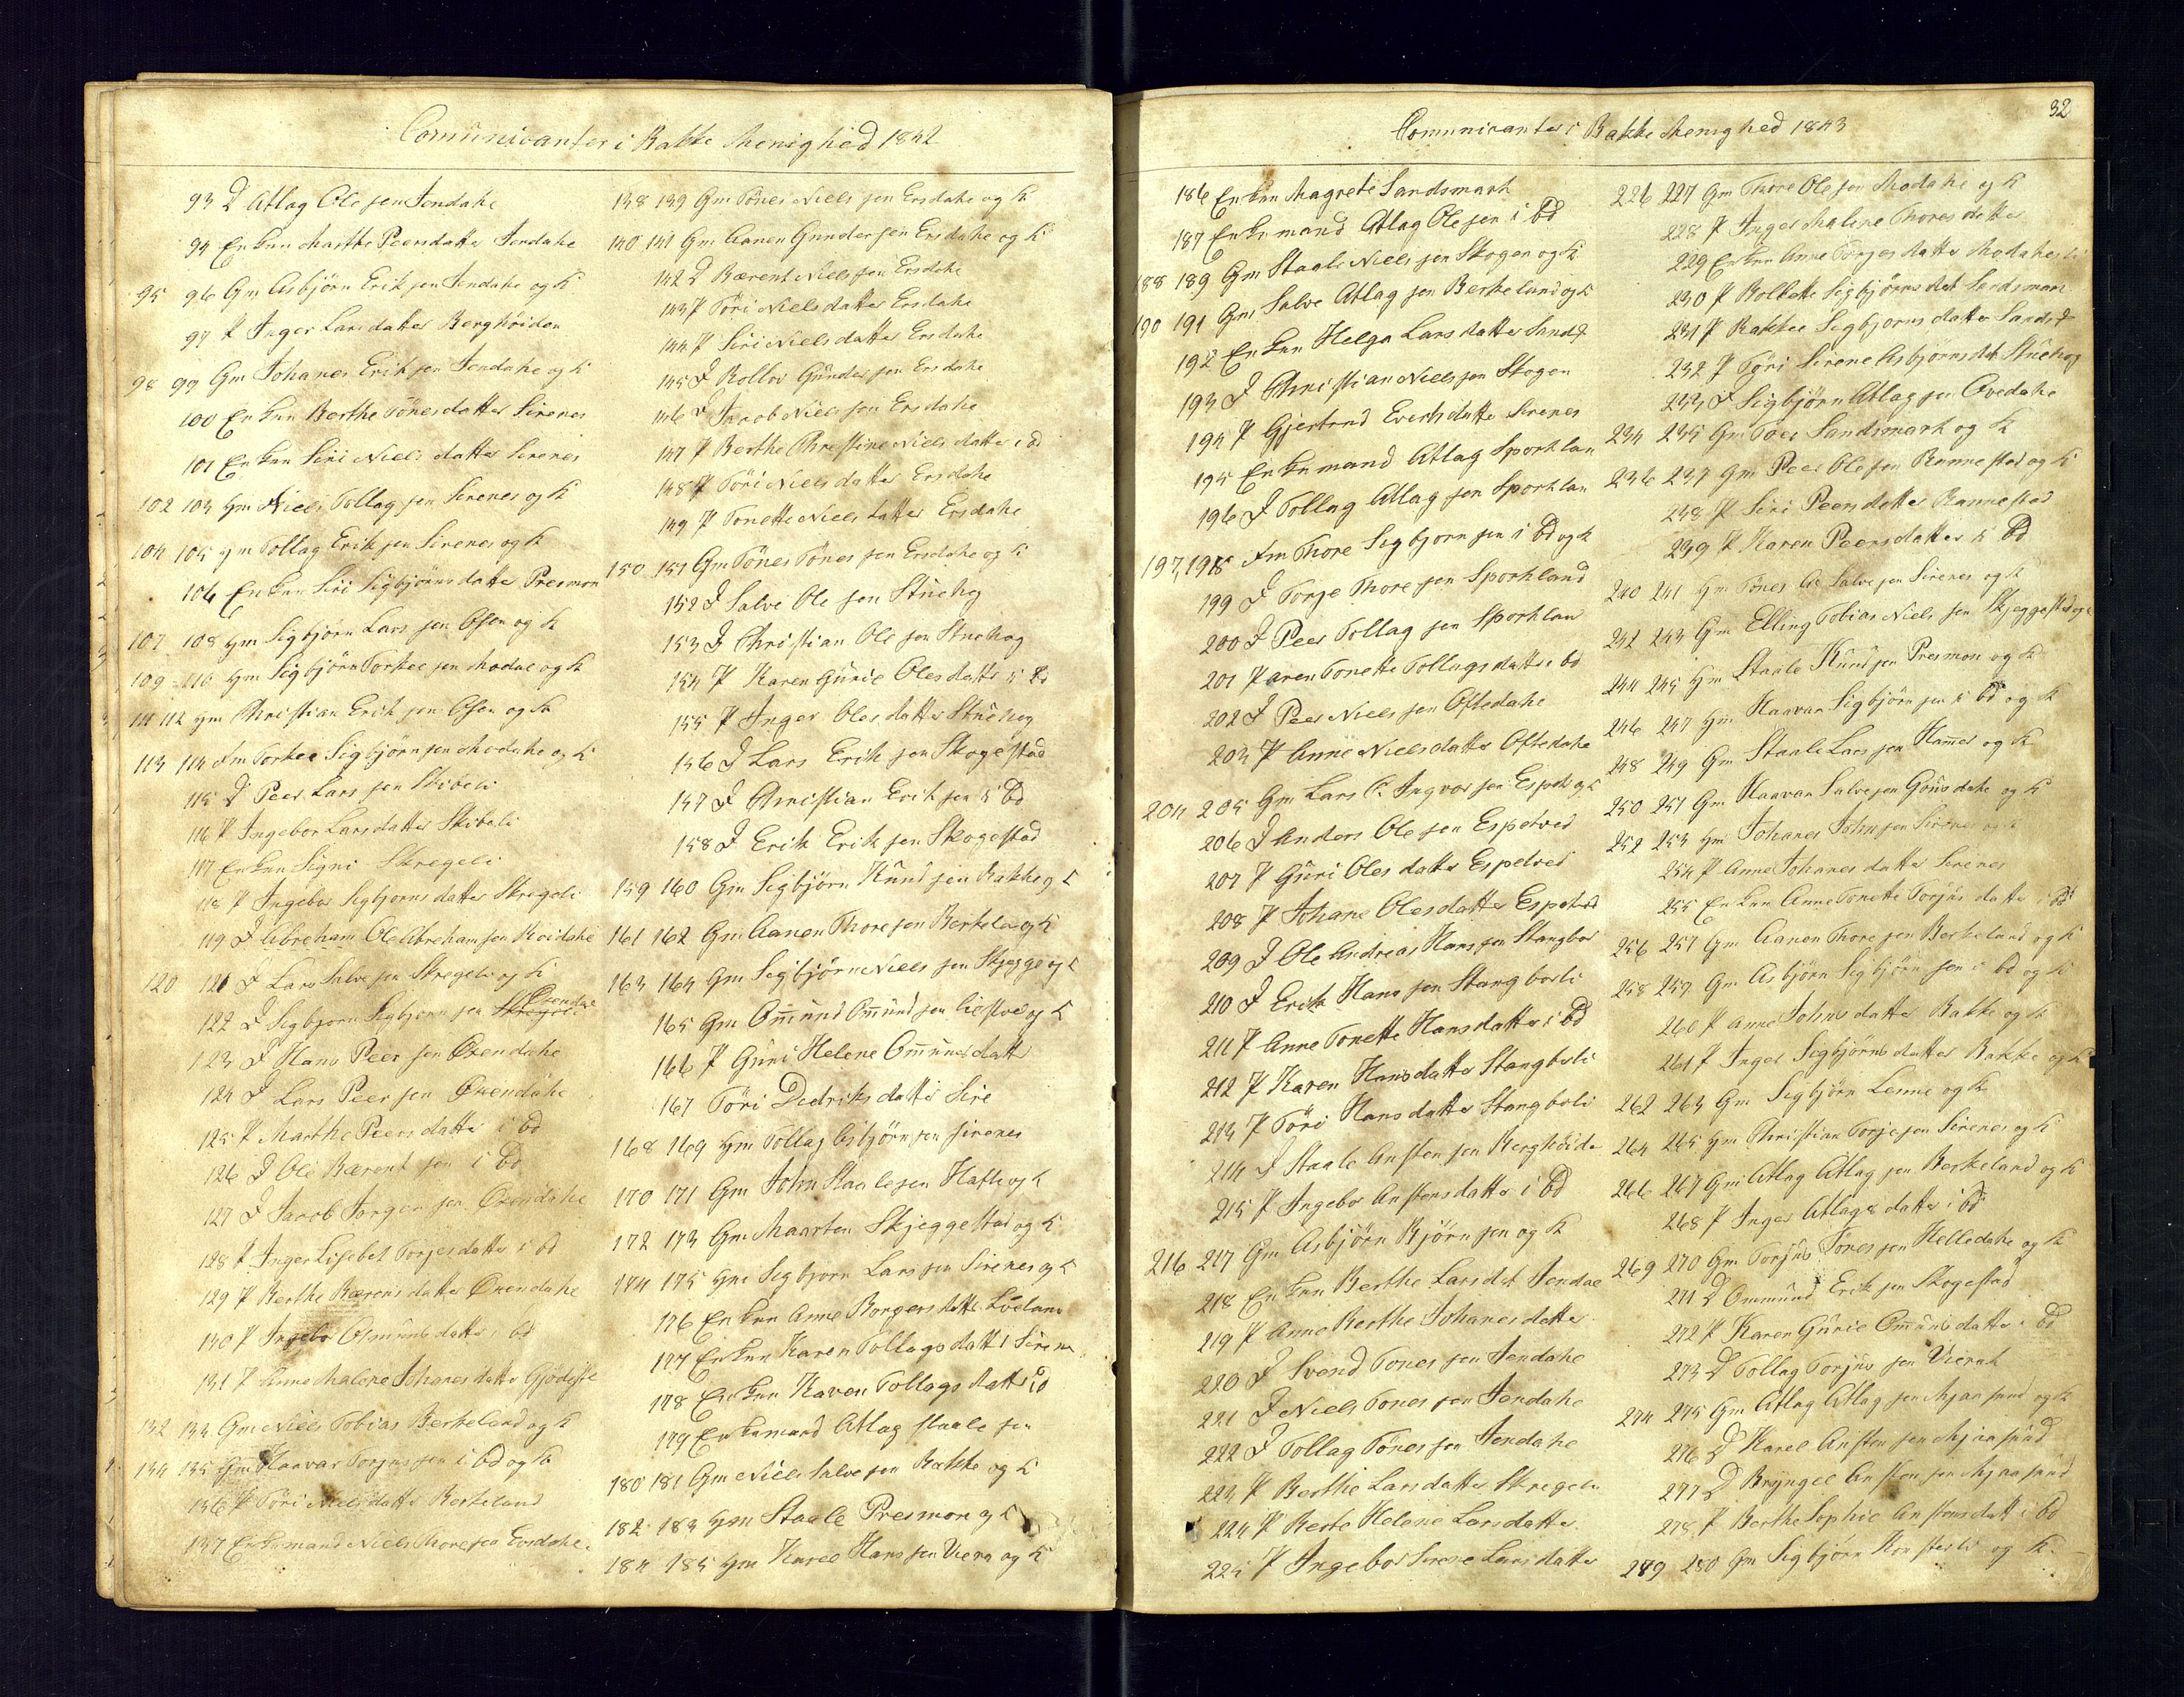 Comunicanter i Bakke Menighed 1842
93 D Atlag Ole sen Jendahe
94 Enkun Marthe Peersdatter Jendahe
95 96 Gm Asbjörn Erik sen Jendahe og K
97 P Inger Larsdatter Berghöiden
98 99 Gm Johanes Erik sen Jendahe og K
100 Enkun Berthe Tönesdatter Sirenes
101 Enkun Siri Niels datter Sirenes
102 103 Hm Niels Tollag sen Sirenes og K
104 105 Hm Tollag Erik sen Sirenes og K
106 Enkun Siri Sigbjörnsdatter Presmon
107 108 Hm Sigbjörn Lars sen Osen og K
109 - 110 Hm Sigbjörn Torkel sen Modal og K
111 112 Hm Christian Erik sen Osen og K
113 114 Fm Torkel Sigbjörn sen Modahe og K
115 D Peer Lars sen Skibeli
116 P Ingebor Larsdatter Skibeli
117 Enkun Signi Skregeli
118 P Ingebor Sigbjorns datter Skregeli
119 D Abreham Ole Abreham sen Roidahe
120 121 D Lars Salve sen Skregeli og K
122 D Sigbjorn Sigbjorn sen Skregeli Öxendal
123 D Hans Peer sen Öxendahe
124 D Lars Peer sen Öxendahe
125 P Marthe Peers datter i bd
126 D Ole Bærent sen i bd
127 D Jacob Jorgen sen Öxendahe
128 P Inger Lisebet Torjesdatter i bd
129 P Berthe Bærens datter Öxendahe
130 P Ingebor Osmunds datter i bd
131 P Anne Malene Johanes datter Gjödeste
132 133 Gm Niels Tobias Berkeland og K
134 135 Gm Haavar Torjus sen i bd og K
136 P Töri Niels datter Berkeland
137 Enkemand Niels Thore sen Eersdahe
138 139 Gm Tönes Niels sen Ersdahe og K
140 141 Gm Aanen Gunder sen Ersdahe og K
142 D Bærent Niels sen Ersdahe
143 P Töri Niels datter Ersdahe
144 P Siri Niels datter Ersdahe
145 D Rollov Gunder sen Ersdahe
146 D Jacob Niels sen Ersdahe
147 P Berthe Chrestine Niels datter i bd
148 P Töri Niels datter Ersdahe
149 P Tonette Niels datter Ersdahe
150 151 Gm Tönes Tönes sen Ersdahe og K
152 D Salve Ole sen Stuehog
153 D Christian Ole sen Stuehog
154 P Karen Gurie Oles datter i bd
155 P Inger Oles datter Stuehog
156 D Lars Erik sen Skogestad
157 D Christian Erik sen i bd
158 D Erik Erik sen Skogestad
159 160 Gm Sigbjörn Knud sen Bakke og K
161 162 Gm Aanen Thore sen Berkela og K
163 164 Gm Sigbjörn Niels sen Skjegge og K
165 Gm Omund Omund sen og K
166 P Guri Helene Omunds datter
167 Töri Dedriks datter Sire
168 169 Hm Tollag Asbjörn sen Sirenes
170 171 Gm John Staale sen og K
172 173 Gm Maarten Skjeggestad og K
174 175 Hm Sigbjorn Lars sen Sirenes og K
176 Enkun Anne Borgers datter
177 Enkun Karen Tollags datter Sirenes
178 Enkun Karen Tollags datter i bd
179 Enkemand Atlag Staale sen
180 181 Gm Niels Salve sen Bakke og K
182 183 Hm Staale Presmon og K
184 185 Hm Karel Hans sen Viera og K
32
Comunicanter i Bakke Menighed 1843
186 Enkun Magrete Sandsmark
187 Enkemand Atlag Ole sen i bd
188 189 Gm Staale Niels sen Skogen og K
190 191 Gm Salve Atlag sen Berkeland og K
192 Enkun Helga Lars datter
193 D Christian Niels sen Skogen
194 P Gjertrud Everts datter Sirenes
195 Enkemand Atlag Sporklan
196 D Tollag Atlag sen Sporklan
197, 198 Fm Thore Sigbjorn sen i bd og K
199 D Torge Thore sen Sporkland
200 D Peer Tollag sen Sporklan
201 P aren Tonette Tollags datter i bd
202 D Peer Niels sen Oftedahe
203 P Anne Niels datter Oftedahe
204 205 Gm Lars C. Ingvar sen Espet og K
206 D Anders Ole sen Espetved
207 P Guri Oles datter Espetved
208 P Johane Oles datter Espetved
209 D Ole Andreas Hans sen Stangbor
210 D Erik Hans sen Stangborli
211 P Anne Tonette Hansdatter i bd
212 P Karen Hansdatter Stangboli
213 P Töri Hansdatter Stangboli
214 D Staale Ansten sen Berghöide
215 P Ingebor Anstensdatter i bd
216 217 Gm Asbjörn Björn sen og K
218 Enkun Berthe Larsdat Jendae
219 P Anne Berthe Johanes datter
220 D Svend Tönes sen Jendahe
221 D Niels Tönes sen Jendahe
222 D Tollag Tönes sen Jendahe
223 P Berthe Larsdatter Skregeli
224 P Berte Helene Larsdatter
225 P Ingebor Sirene Larsdatter
226 227 Gm Thore Ole sen Modahe og K
228 P Inger Malene Thores datter
229 Enkun Anne Torjes datter
230 P Bolette Sigbjörns dat Sandsmar
231 P Rakkel Sigbjorns datter
232 P Töri Sirene Asbjörnsdat Stuehog
233 D Sigbjörn Atlag sen Ovedahe
234 235 Gm Toer Sandsmark og K
236 237 Gm Peer Ole sen Rannestad og K
238 P Siri Peersdatter Rannestad
239 P Karen Peersdatter i bd
240 241 Hm Tönes Salve sen Sirenes og K
242 243 Gm Elling Tobias Niels sen Skjeggestad og K
244 245 Hm Staale Knud sen Presmon og K
246 247 Hm Haavar Sigbjörn sen i bd og K
248 249 Gm Staale Lars sen Hamer og K
250 251 Gm Haavar Salve sen og K
252 253 Hm Johanes John sen Sirenes og K
254 P Anne Johanes datter Sirenes
255 Enkun Anne Tonette Torjus datter i bd
256 257 Gm Aanen Thore sen Berkeland og K
258 259 Gm Asbjörn Sigbjörn sen i bd og K
260 P Anne Johns datter Bakke og K
261 P Inger Sigbjörns datter Bakke og K
262 263 Gm Sigbjörn Lenne og K
264 265 Hm Christian Torje sen Sirenes og K
266 267 Gm Atlag Atlag sen Berkeland og K
268 P Inger Atlags datter i bd
269 270 Gm Torjus Tönes sen Helledahe og K
271 D Ommund Erik sen Skogestad
272 P Karen Gurie Omunds datter i bd
273 D Tollag Torjus sen Vierak
274 275 Gm Atlag Atlag sen Mjaasund og K
276 D Karel Ansten sen Mjaasund
277 D Bryngel Ansten sen Mjaasund
278 P Berthe Sophie Anstensdatt i bd
279 280 Gm Sigbjörn og K